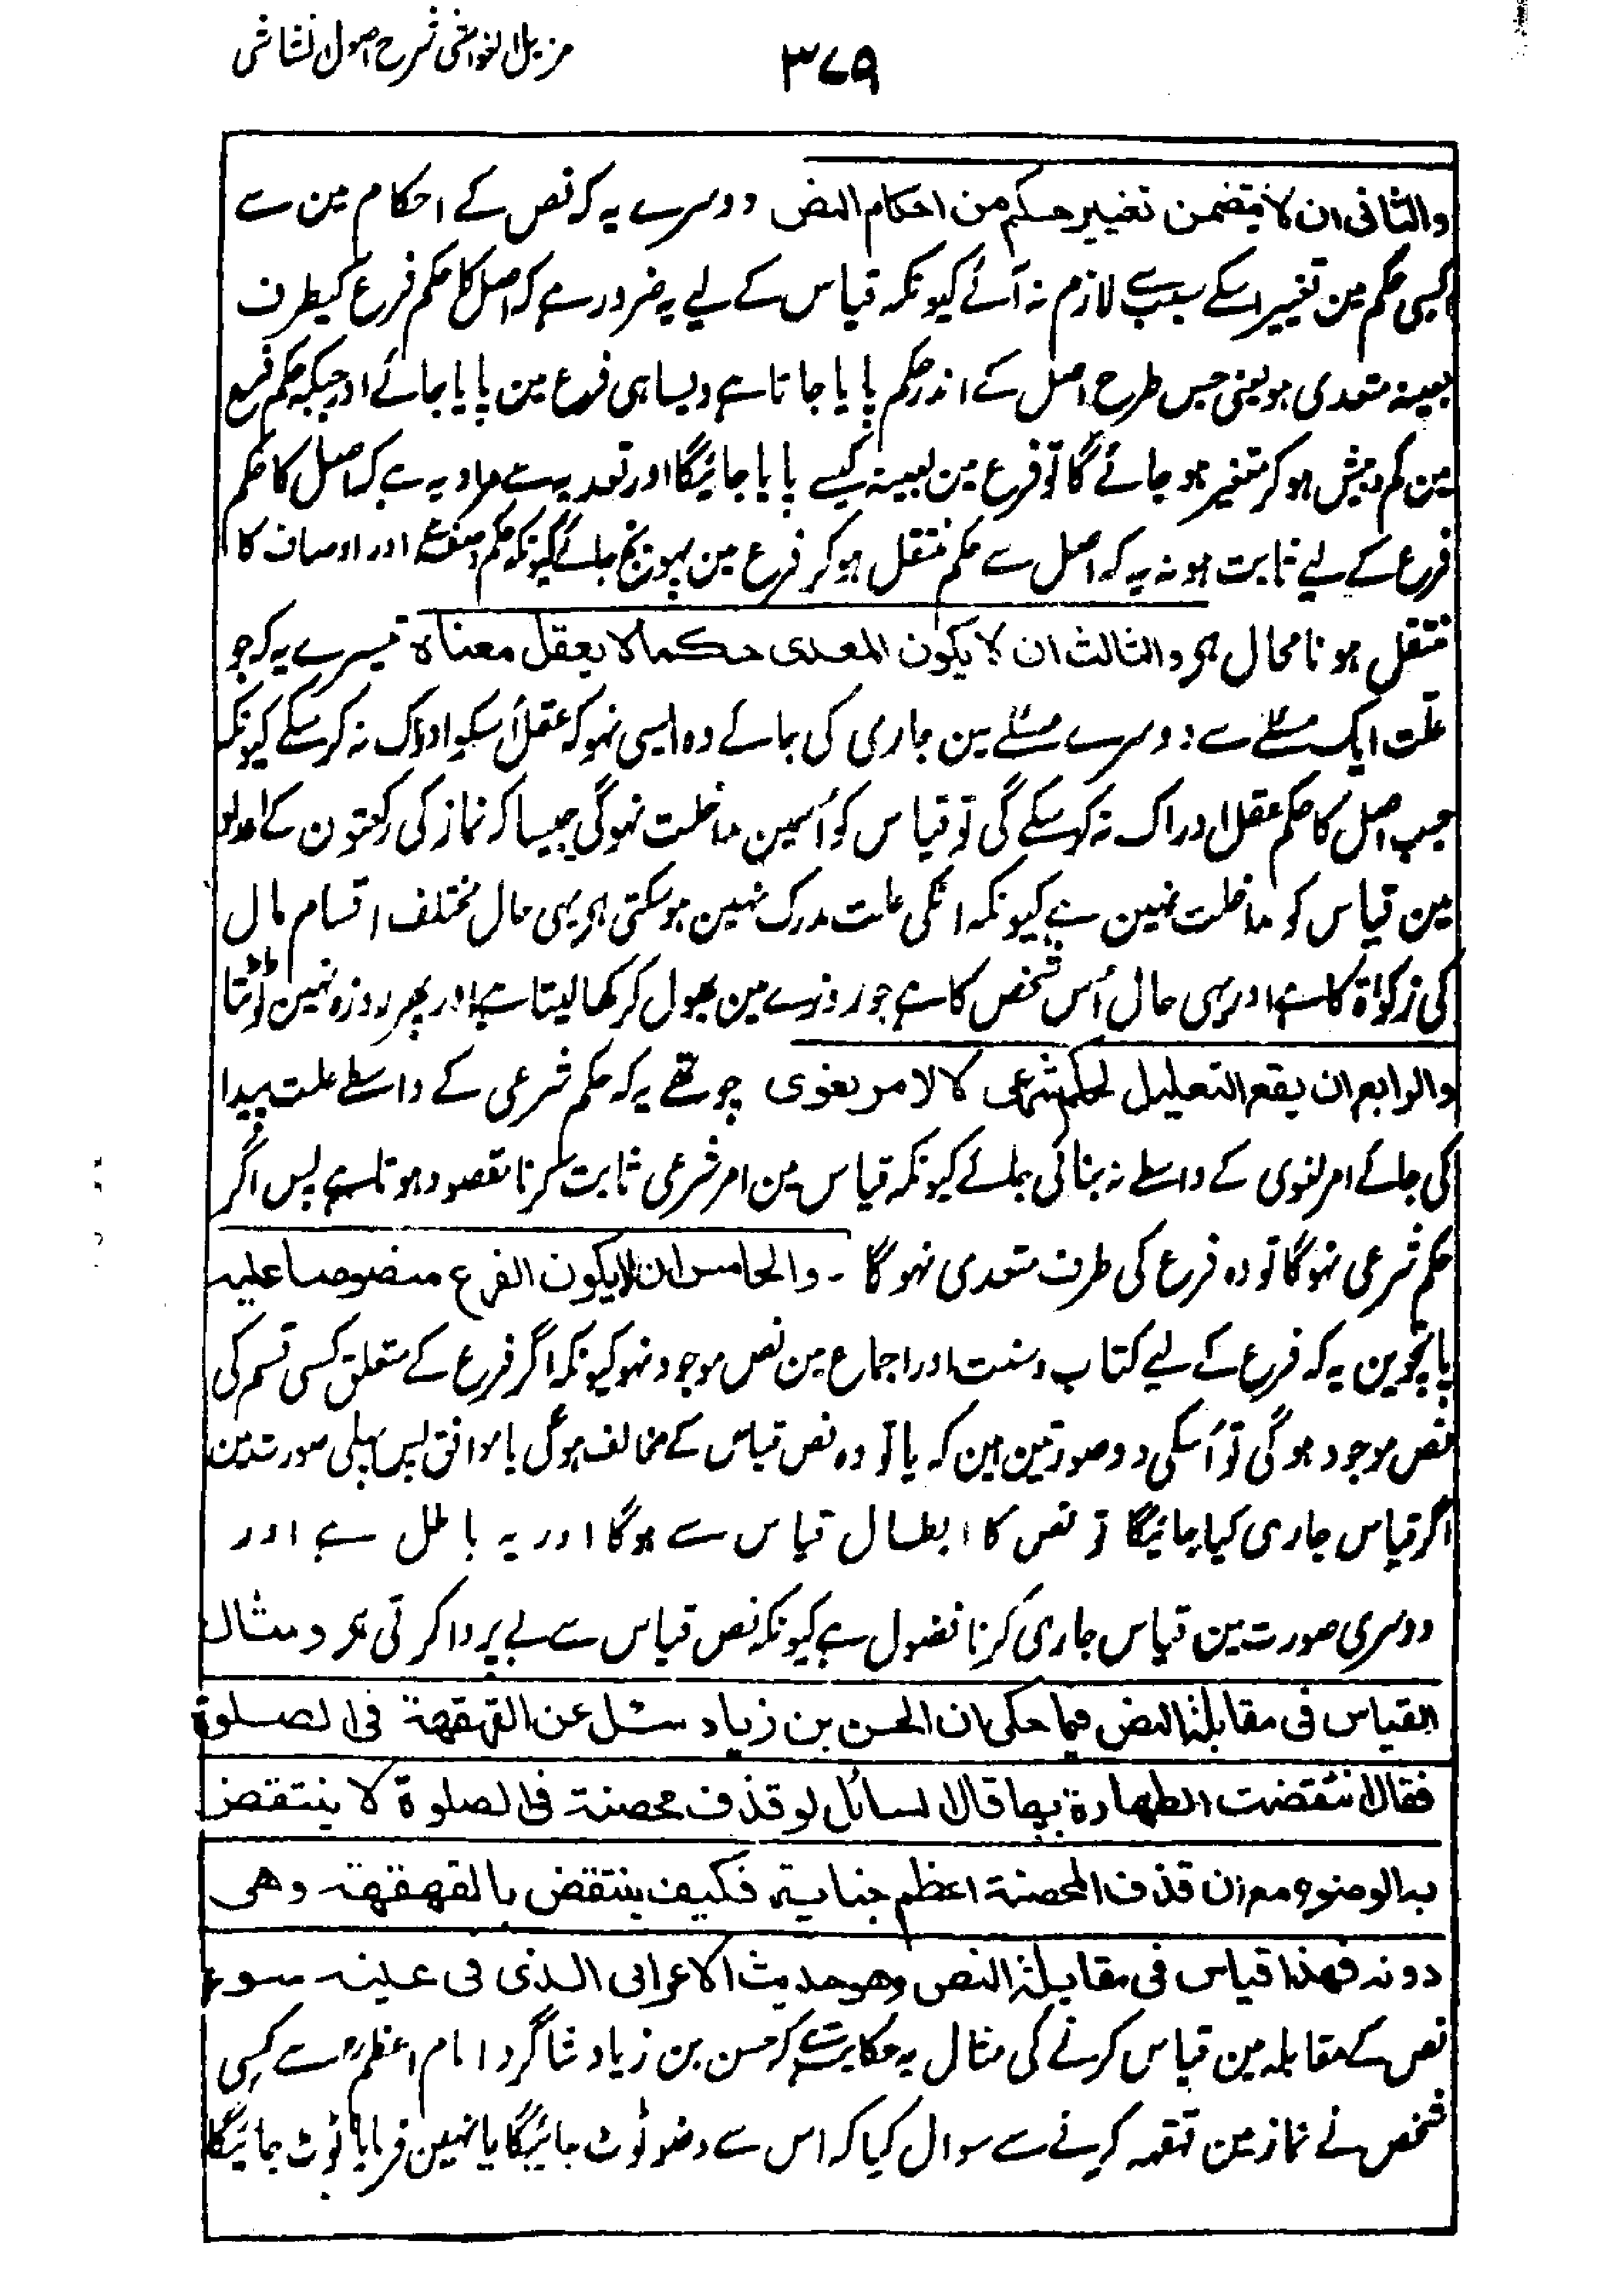 ۳۷۹
مزیل الغواشی شرح اصول الشاشی
والثانی ان لا یتضمن تغییر حکم من احکام النص دوسرے یہ کہ نص کے احکام مین سے
کسی حکم مین تغییر اسکے سبب سے لازم نہ آئے کیونکہ قیاس کے لیے یہ ضرور ہے کہ اصل کا حکم فرع کیطرف
بعینہ متعدی ہو یعنی جس طرح اصل کے اندر حکم پایا جاتا ہے ویسا ہی فرع مین پایا جائے اور جبکہ حکم فرع
مین کم و بیش ہو کر متغیر ہو جائے گا تو فرع مین بعینہ کیسے پایا جائیگا اور تعدیہ سے مراد یہ ہے کہ اصل کا حکم
فرع کے لیے ثابت ہو نہ یہ کہ اصل سے حکم منتقل ہو کر فرع مین پہونچ جائے کیونکہ حکم وصف ہے اور اوصاف کا
منتقل ہونا محال ہی والثالث ان لا یکون المعدی حکما لا یعقل معناہ تیسرے یہ کہ جو
علت ایک مسئلے سے دوسرے مسئلے مین جاری کی جائے وہ ایسی نہو کہ عقل اُسکو ادراک نہ کر سکے کیونکہ
جب اصل کا حکم عقل ادراک نہ کر سکے گی تو قیاس کو اُسمین مداخلت نہوگی جیسا کہ نماز کی رکعتون کے اعداد
مین قیاس کو مداخلت نہین ہے کیونکہ انکی علت مدرک نہین ہو سکتی ہی یہی حال مختلف اقسام مال
کی زکوٰۃ کا ہے اور یہی حال اُس شخص کا ہے جو روزے مین بھول کر کھا لیتا ہے اور پھر روزہ نہین ٹوٹتا
والرابع ان یقع التعلیل لحکم شرعی لا لامر لغوی چوتھے یہ کہ حکم شرعی کے واسطے علت پیدا
کی جائے امر لغوی کے واسطے نہ بنائی جائے کیونکہ قیاس مین امر شرعی ثابت کرنا مقصود ہوتا ہے پس اگر
حکم شرعی نہوگا تو وہ فرع کی طرف متعدی نہوگا ۔ والخامس ان لا یکون الفرع منصوصا علیہ
پانچوین یہ کہ فرع کے لیے کتاب و سنت اور اجماع مین نص موجود نہو کیونکہ اگر فرع کے متعلق کسی قسم کی
نص موجود ہوگی تو اُسکی دو صورتین ہین کہ یا تو وہ نص قیاس کے مخالف ہوگی یا موافق پس پہلی صورت مین
اگر قیاس جاری کیا جائیگا تو نص کا ابطال قیاس سے ہوگا اور یہ باطل ہے اور
دوسری صورت مین قیاس جاری کرنا فضول ہے کیونکہ نص قیاس سے بے پروا کرتی ہی ومثال
القیاس فی مقابلۃ النص فیما حکی ان الحسن بن زیاد سئل عن القہقہۃ فی الصلوۃ
فقال انتقضت الطہارۃ بہا قال السائل لو قذف محصنۃ فی الصلوۃ لا ینتقض
بہ الوضوء مع ان قذف المحصنۃ اعظم جنایۃ فکیف ینتقض بالقہقہۃ وھی
دونہ فہذا قیاس فی مقابلۃ النص وھو حدیث الاعرابی الذی فی عینہ سوء
نص کے مقابلہ مین قیاس کرنے کی مثال یہ حکایت ہے کہ حسن بن زیاد شاگرد امام اعظم رح سے کسی
شخص نے نماز مین قہقہہ کرنے سے سوال کیا کہ اس سے وضو ٹوٹ جائیگا یا نہین فرمایا ٹوٹ جائیگا